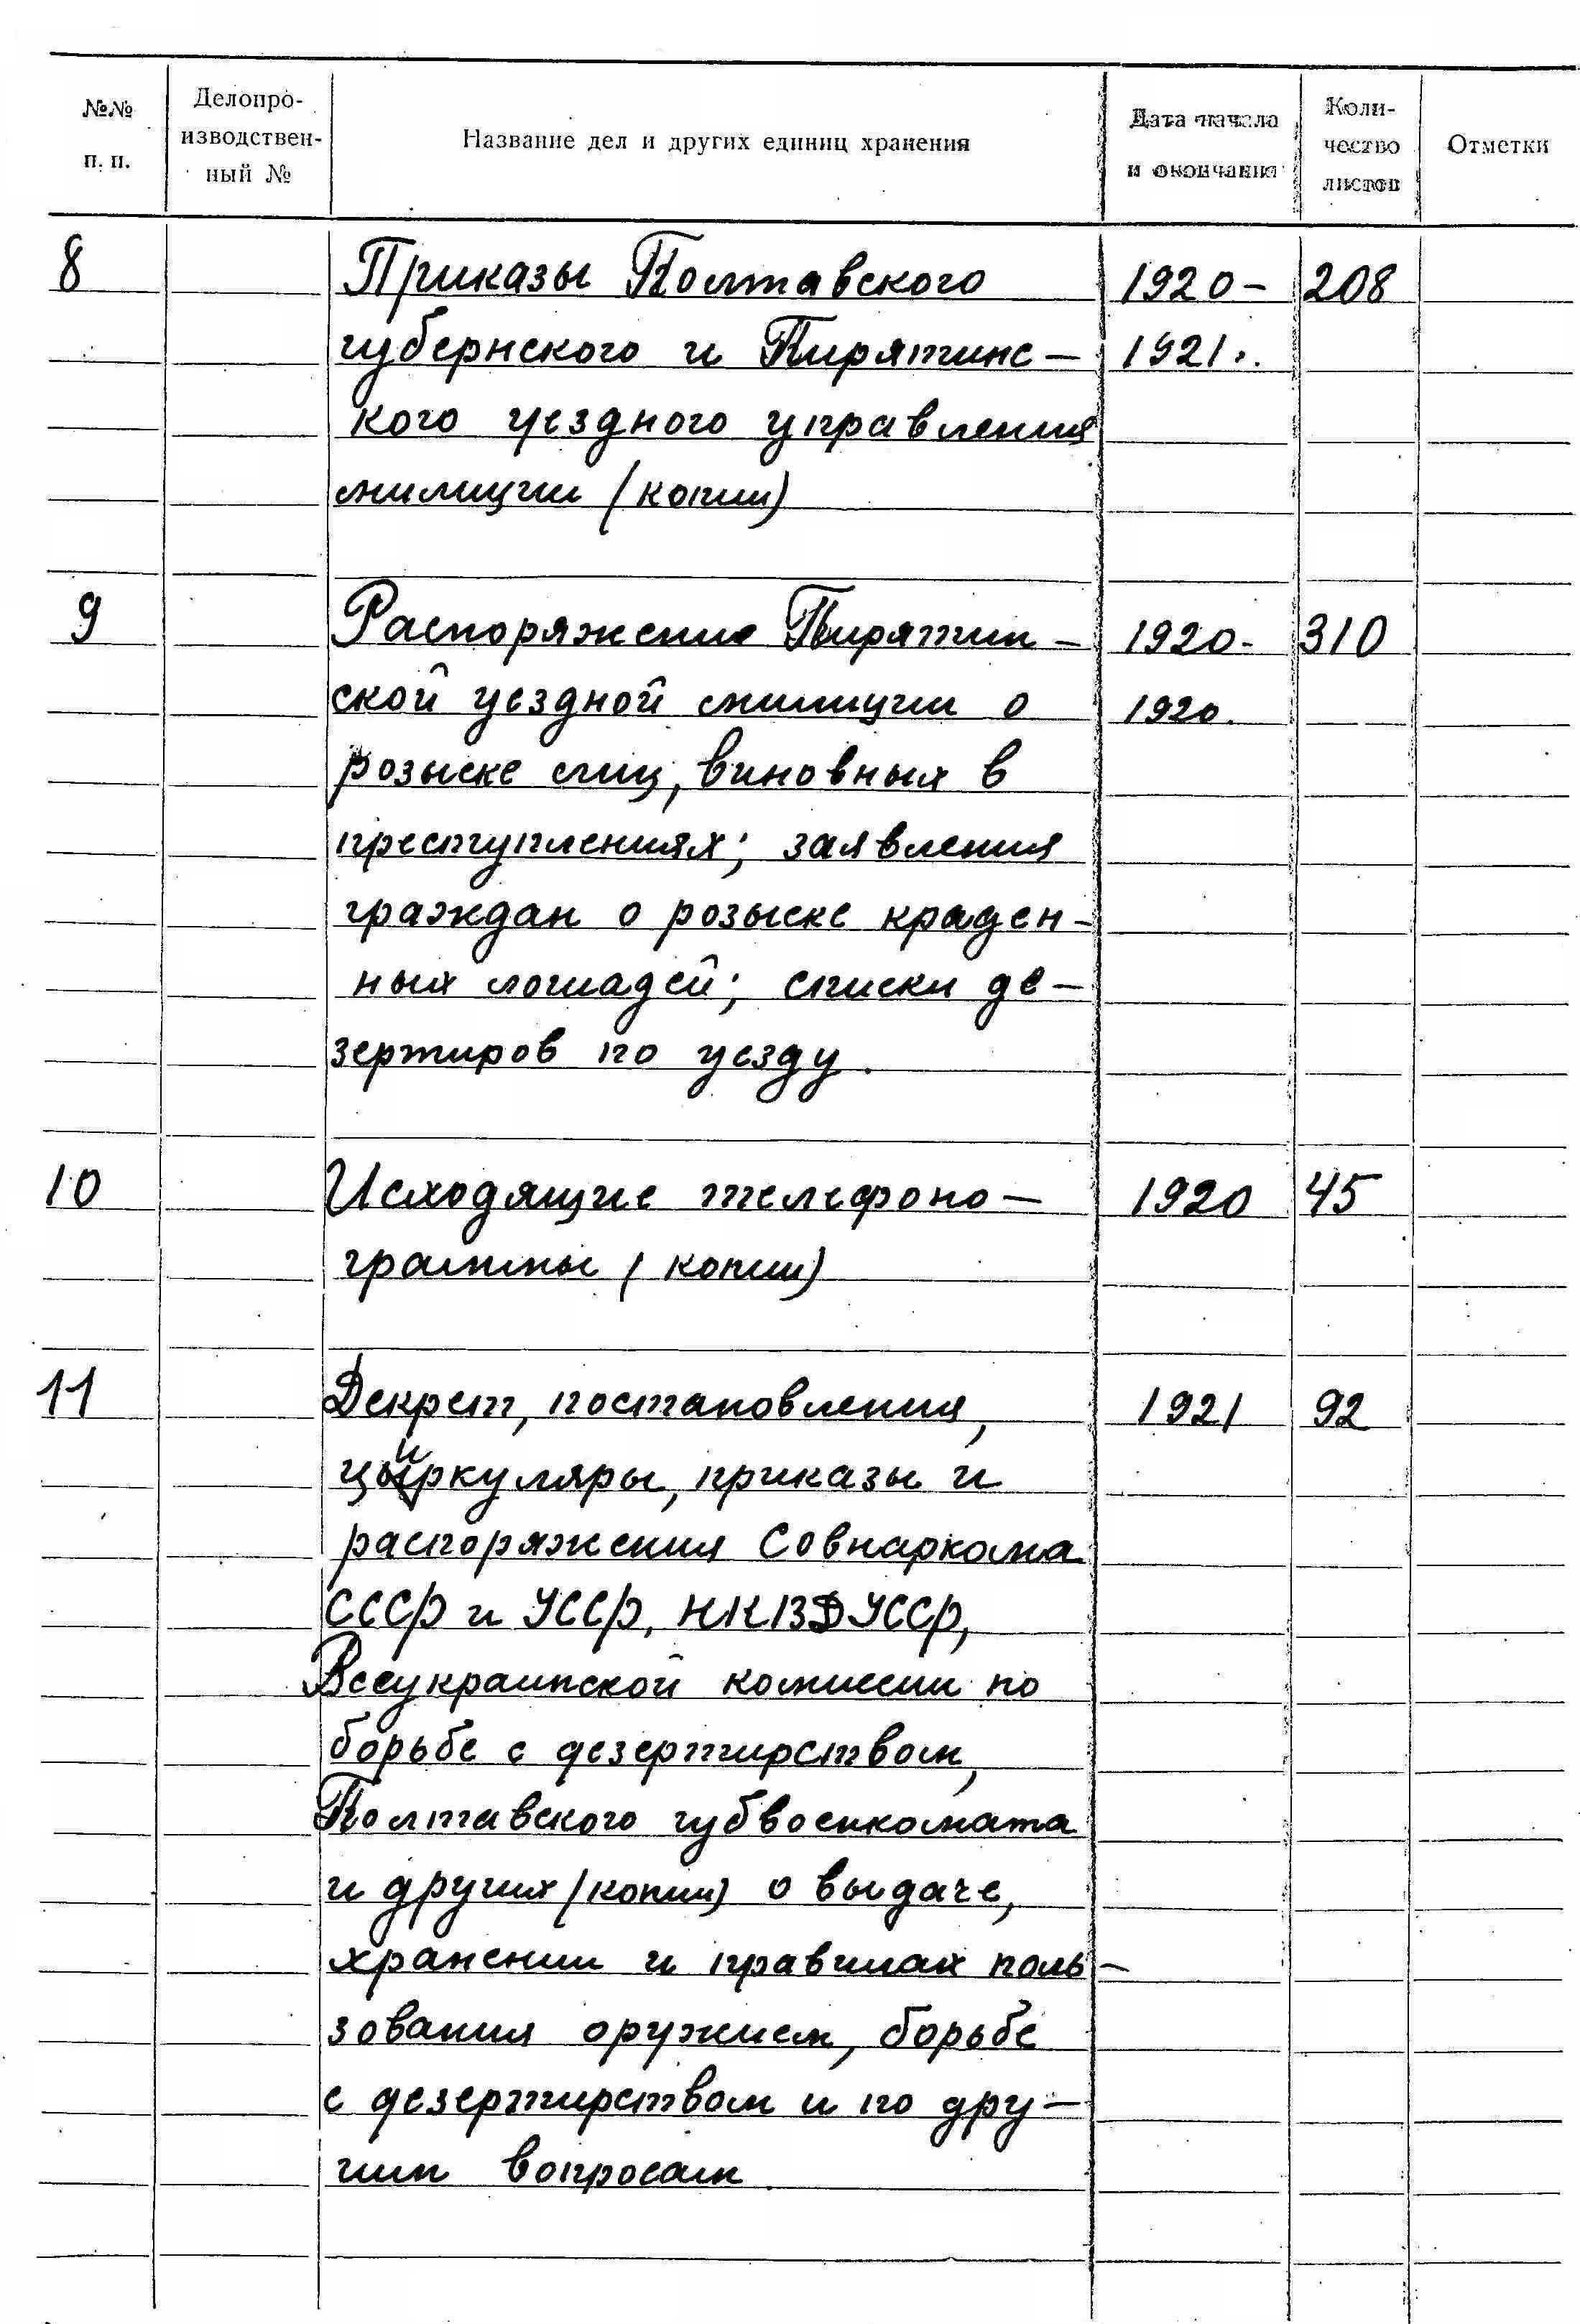 №№ п. п.
Делопро-
изводствен-
ный №
Название дел и других единиц хранения
Дата начала
и окончания
Коли-
чество
листов
Отметки
8 Приказы Полтавского 1920- 208
губернского и Пирятинс- 1921.
кого уездного управления
милиции (копии)
9 Распоряжение Пирятин- 1920- 310
ской уездной милиции о 1920.
розыске лиц, виновных в
преступлениях; заявления
граждан о розыске краден-
ных лошадей; списки де-
зертиров по уезду.
10 Исходящие телефоно- 1920 45
граммы (копии)
11 Декрет, постановления, 1921 92
циркуляры, приказы и
распоряжения Совнаркома
СССР и УССР, НКВД УССР,
Всеукраинской комиссии по
борьбе с дезертирством,
Полтавского губвоенкомата
и других (копии) о выдаче,
хранении и правилах поль-
зования оружием, борьбе
с дезертирством и по дру-
гим вопросам